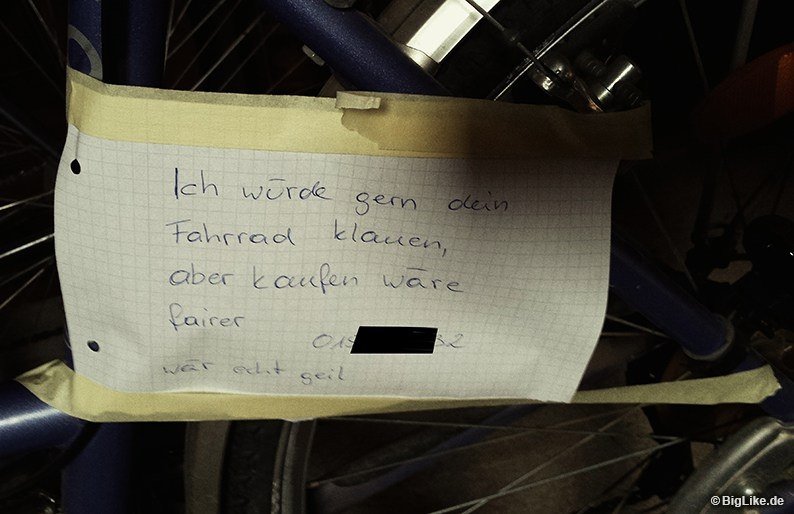 Ich würde gern dein
Fahrrad klauen,
aber kaufen wäre
fairer
015 32
wär echt geil
© BigLike.de